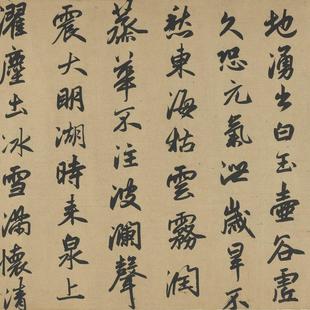 地湧出白玉壺谷虛
久恐元氣泄歲旱不
愁東海枯雲霧潤
蒸華不注波瀾聲
震大明湖時來泉上
濯塵土冰雪滿懷清